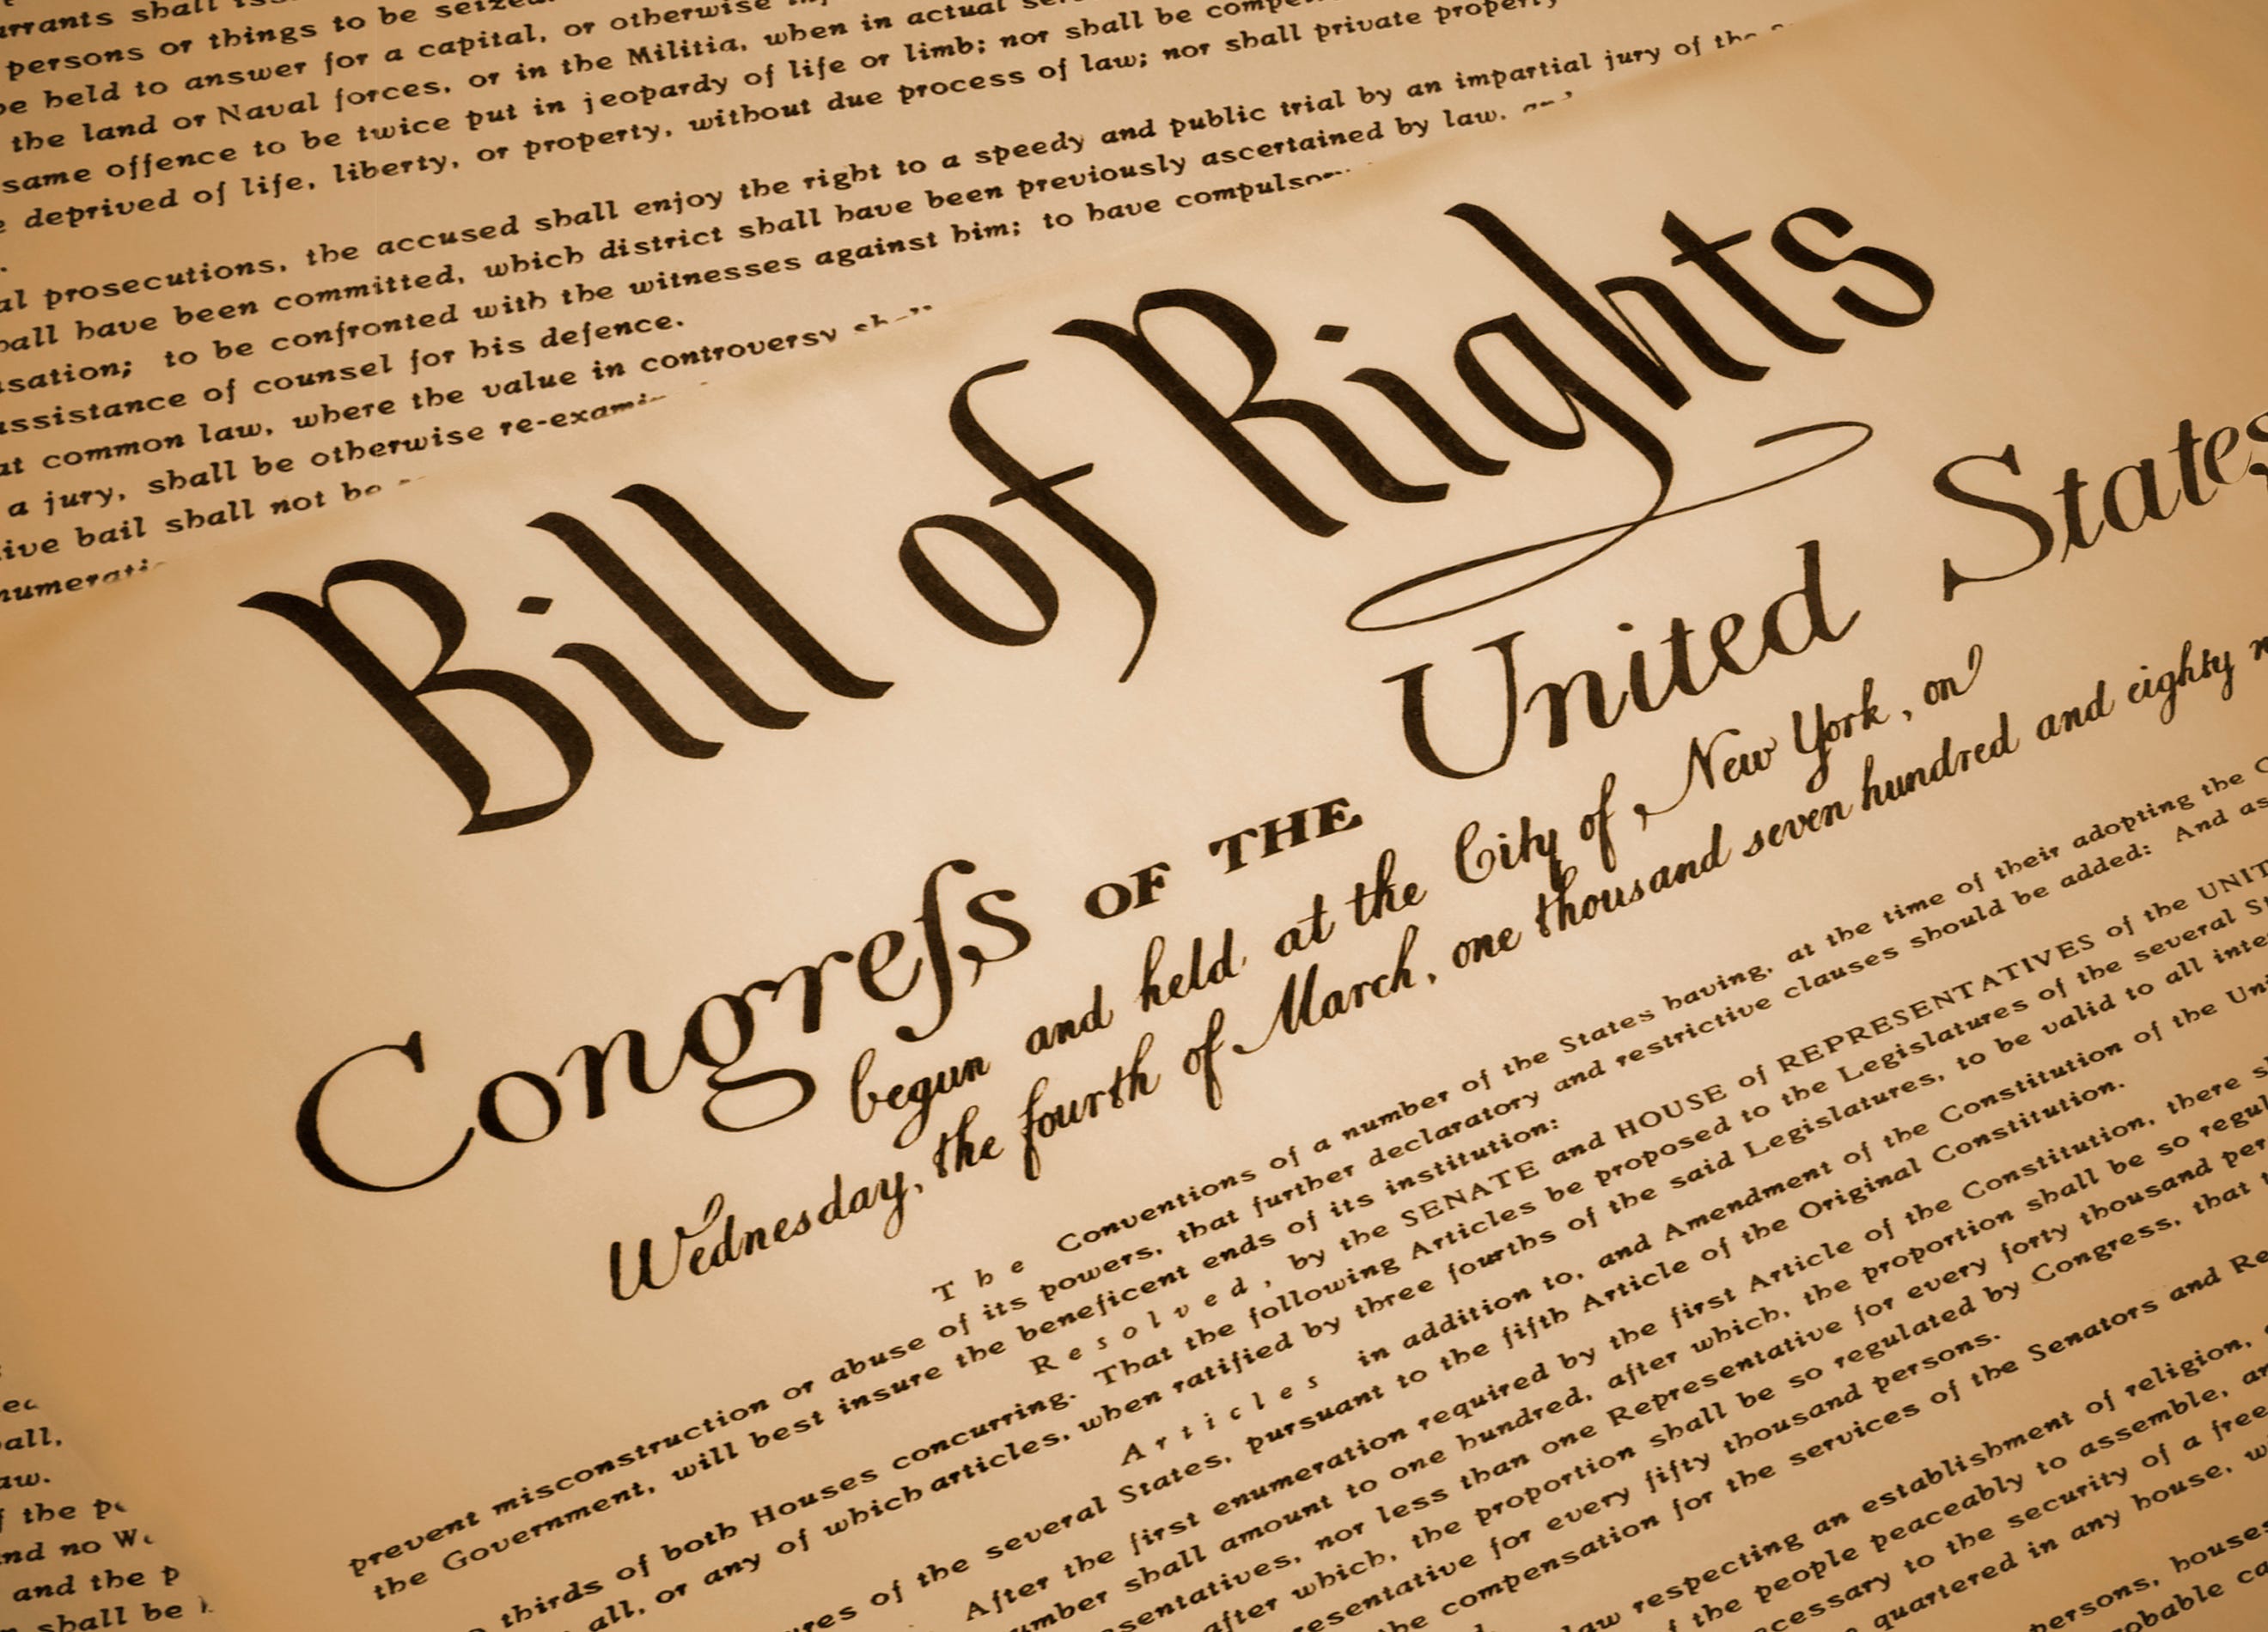 persons or things to be
be held to answer for a capital, or otherwise
the land or Naval forces, or in the Militia, when in actual
same offence to be twice put in jeopardy of life or limb; nor shall be
deprived of life, liberty, or property, without due process of law; nor shall private property
prosecutions, the accused shall enjoy the right to a speedy and public trial by an impartial jury of the
have been committed, which district shall have been previously ascertained by law,
to be confronted with the witnesses against him; to have
assistance of counsel for his defence.
at common law, where the value in controversy
a jury, shall be otherwise
bail shall not be
Bill of Rights
Congreſs OF THE United States
begun and held at the City of New York, on
Wednesday, the fourth of March, one thousand seven hundred and eighty
The Conventions of a number of the States having, at the time of their adopting the
prevent misconstruction or abuse of its powers, that further declaratory and restrictive clauses should be added: And as
the Government, will best insure the beneficent ends of its institution:
Resolved, by the SENATE and HOUSE of REPRESENTATIVES of the
thirds of both Houses concurring. That the following Articles be proposed to the Legislatures of the several
all, or any of which articles, when ratified by three fourths of the said Legislatures, to be valid to all
Articles in addition to, and Amendment of the Constitution of the
of the several States, pursuant to the fifth Article of the Original Constitution.
After the first enumeration required by the first Article of the Constitution, there
shall amount to one hundred, after which, the proportion shall be so
nor less than one Representative for every forty thousand
after which, the proportion shall be so regulated by Congress, that
for every fifty thousand persons.
compensation for the services of the Senators and
law respecting an establishment of religion,
the people peaceably to assemble,
to the security of a
quartered in any house,
persons,
all,
the
and no
and the
shall be